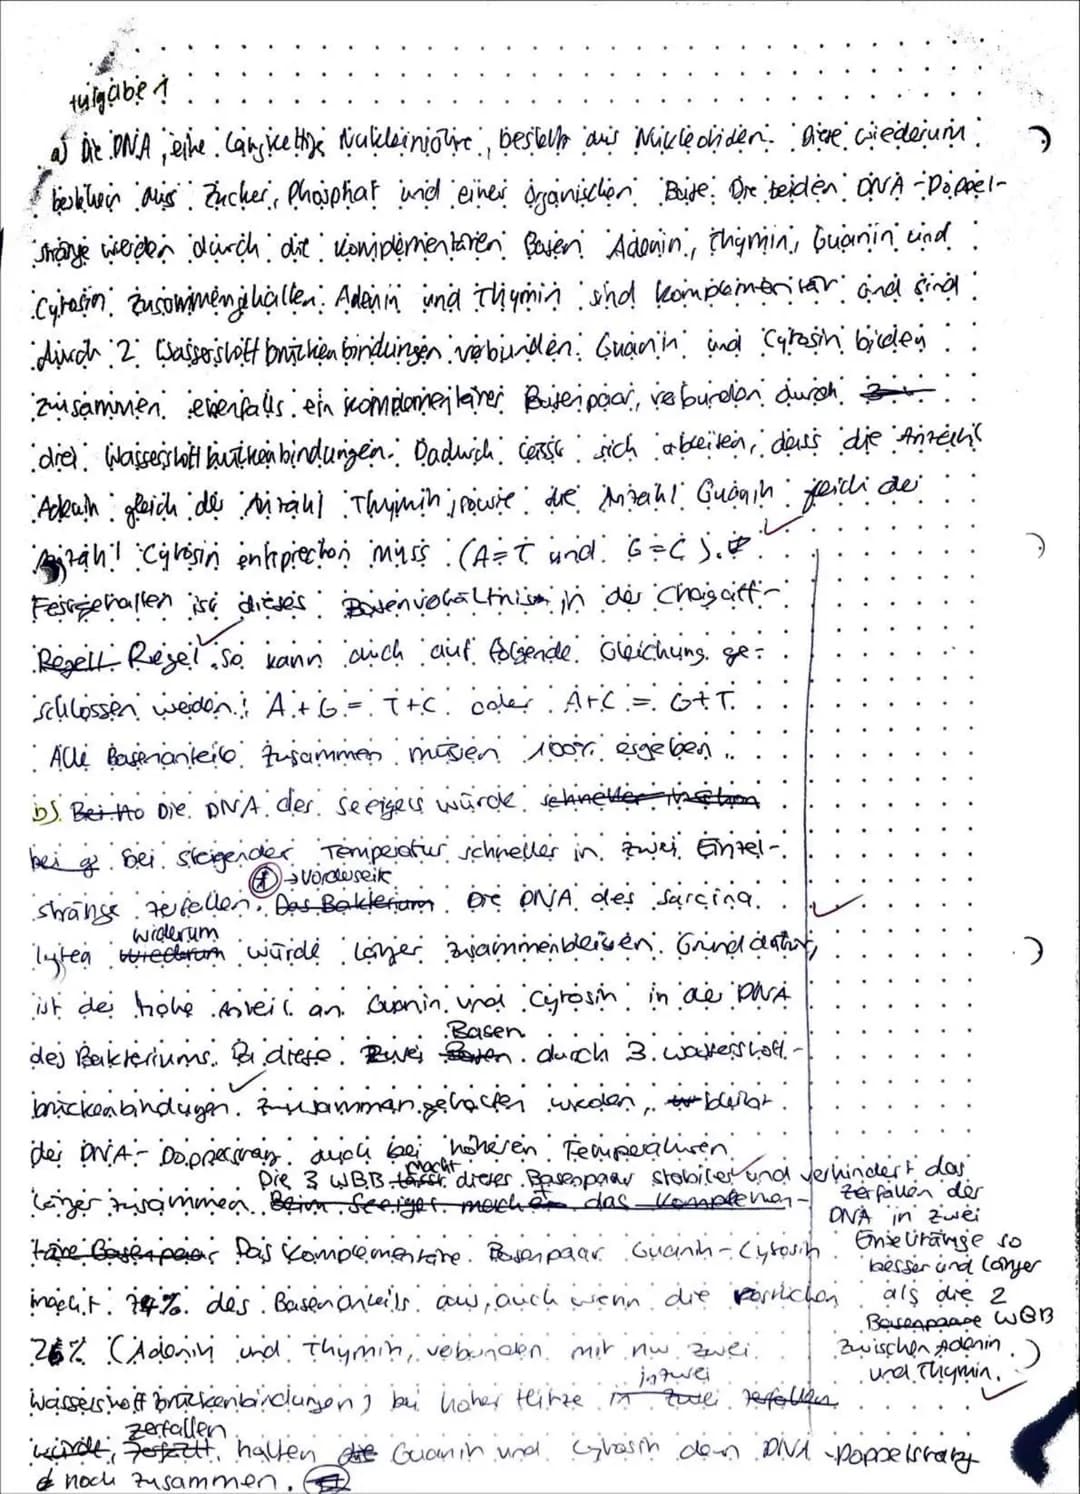 Aufgabe 1
a) Die DNA, eine langkettige Nukleinsäure, besteht aus Nukleotiden. Diese wiederum
bestehen aus Zucker, Phosphat und einer organischen Base. Die beiden DNA-Doppel-
stränge werden durch die komplementären Basen Adenin, Thymin, Guanin und
Cytosin zusammengehalten. Adenin und Thymin sind komplementär und sind
durch 2 Wasserstoffbrückenbindungen verbunden. Guanin und Cytosin bilden
zusammen ebenfalls ein komplementäres Basenpaar, verbunden durch
drei Wasserstoffbrückenbindungen. Dadurch lässt sich ableiten, dass die Anzahl
Adenin gleich der Anzahl Thymin, sowie die Anzahl Guanin gleich der
Anzahl Cytosin entsprechen muss (A=T und G=C).
Festgehalten ist dieses Basenverhältnis in der Chargaff-
Regell Regel. So kann auch auf folgende Gleichung ge-
schlossen werden: A+G = T+C oder A+C = G+T.
Alle Basenanteile zusammen müssen 100% ergeben.
b) Die DNA der Seeigels würde schneller
bei bei steigender Temperatur schneller in zwei Einzel-
→ Vorderseite
stränge zerfallen. Das Bakterium Die DNA des Sarcina
widerum
lytea wiedrum würde länger zusammenbleiben. Grund dafür,
ist der hohe Anteil an Guanin und Cytosin in der DNA
Basen
des Bakteriums. Da diese zwei Basen durch 3 Wasserstoff-
brückenbindungen zusammengehalten werden, bleibt
der DNA-Doppelstrang auch bei höheren Temperaturen
macht
Die 3 WBB lässt dieses Basenpaar stabiler und verhindert das
länger zusammen. Beim Seeigel machen das komplemen-
zerfallen der
DNA in zwei
täre Basenpaar Das komplementäre Basenpaar Guanin-Cytosin
Einzelstränge so
besser und länger
macht 74% des Basenanteils aus, auch wenn die restlichen
als die 2
Basenpaare WBB
26% (Adenin und Thymin, verbunden mit nur zwei
zwischen Adenin
und Thymin.
in zwei
Wasserstoffbrückenbindungen) bei hoher Hitze in zwei zerfallen
zerfallen
würde, zerfällt, halten die Guanin und Cytosin den DNA-Doppelstrang
noch zusammen.